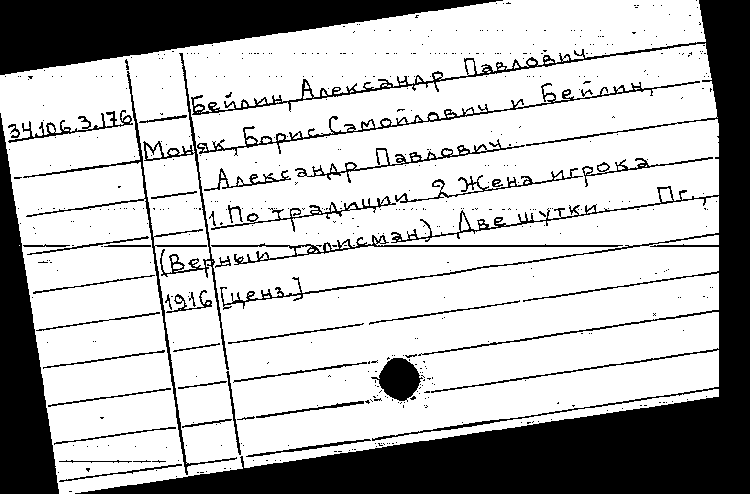 Бейлин, Александр Павлович
34.106.3.176
Моняк, Борис Самойлович и Бейлин,
Александр Павлович.
1. По традиции. 2 Жена игрока
(Верный талисман). Две шутки. Пг.,
1916 [ценз.]